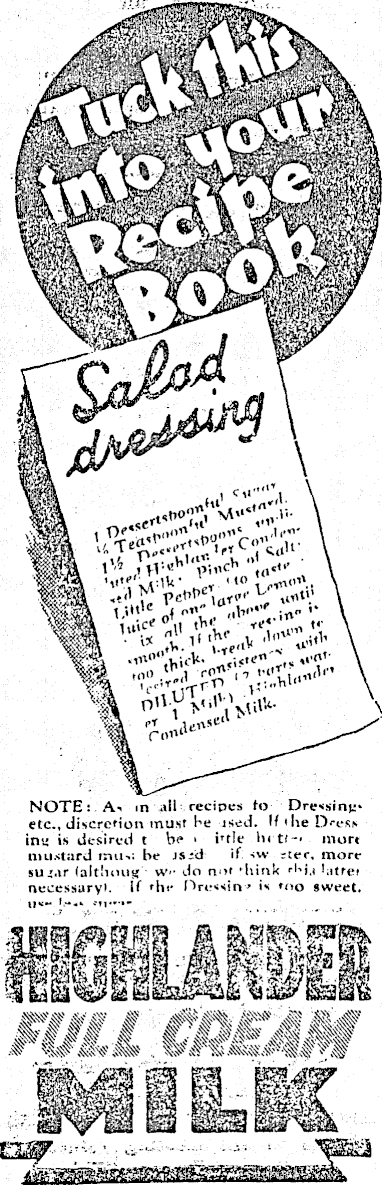 Tuck this
into your
Recipe
Book
Salad
dressing
1 Dessertspoonful Sugar
½ Teaspoonful Mustard.
1½ Dessertspoons undi-
luted Highlander Conden-
sed Milk. Pinch of Salt
Little Pepper to taste
Juice of one large Lemon
ix all the above until
smooth. If the Dressing is
too thick, break down to
desired consistency with
DILUTED (2 parts wat-
er 1 Milk) Highlander
Condensed Milk.
NOTE: As in all recipes for Dressings
etc., discretion must be used. If the Dress
ing is desired to be little hotter more
mustard must be used if sweeter, more
sugar (although we do not think this latter
necessary). if the Dressing is too sweet,
use less sugar
HIGHLANDER
FULL CREAM
MILK